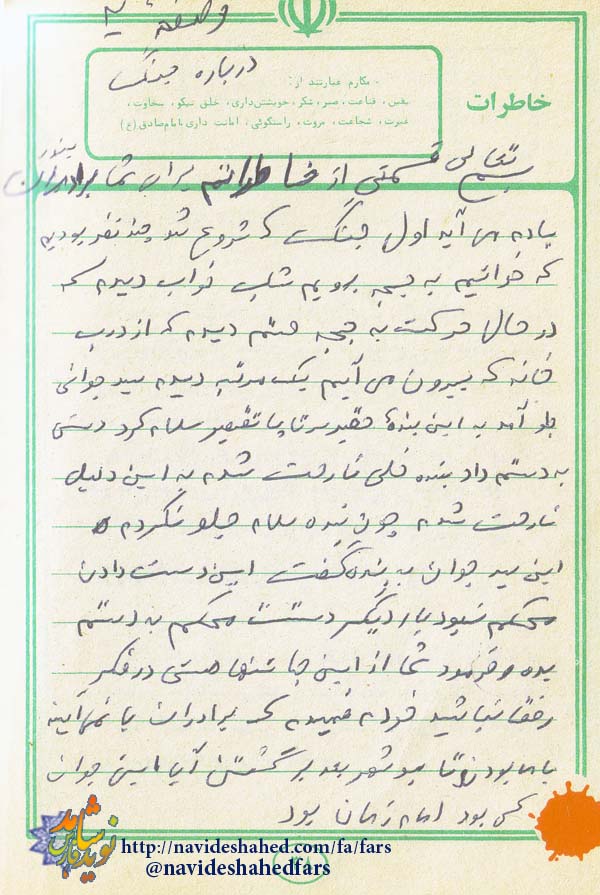 درباره جنگ
- مکارم عبارتند از:
یقین، قناعت، صبر، شکر، خویشتن‌داری، خلق نیکو، سخاوت،
غیرت، شجاعت، مروت، راستگوئی، امانت داری «امام صادق (ع)»
خاطرات
بسم تعالی قسمتی از خاطراتم برای شما برادران
یادم می آید اول جنگ که شروع شد چند نفر بودیم
که خواستیم به جبهه برویم شب خواب دیدم که
در حال حرکت به جبهه هستم دیدم که از درب
خانه که بیرون می آیم یک مرتبه دیدم سید جوانی
جلو آمد به این بنده حقیر سر تا پا تقصیر سلام کرد دستی
به دستم داد بنده خیلی ناراحت شدم به این دلیل
ناراحت شدم چون بنده سلام جلو نکردم
این سید جوان به بنده گفت این دست دادن
محکم نبود بار دیگر دستت محکم به دستم
بده و فرمود شما از این جا تنها هستی در فکر
رفقا نباشید خودم فهمیدم که برادران با نمی آیند
با ما بودن تا بوشهر بعد برگشتن آیا این جوان
کی بود امام زمان بود
نوید شاهد
فارس
http://navideshahed.com/fa/fars
@navideshahedfars